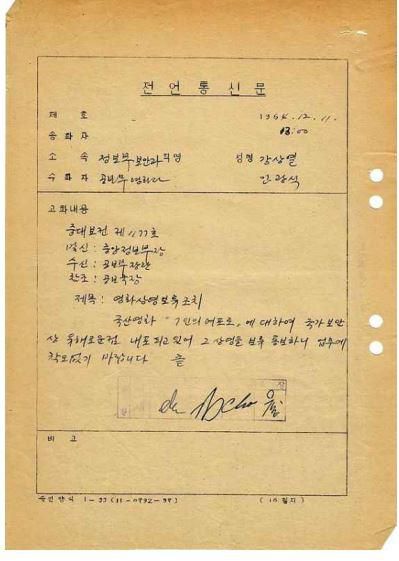 전 언 통 신 문
제 호 1964. 12. 11.
송 화 자 13:00
소 속 정보부 보안과 직명 성명 강상열
수 화 자 공보부 영화과 민광식
고화내용
중대보건 제 1177호
발신 : 중앙정보부장
수신 : 공보부장관
참조 : 공보국장
제목 : 영화상영보류조치
국산영화 "7인의 여포로" 에 대하여 국가보안
상 유해로운점 내포되고 있어 그 상영을 보류 통보하니 업무에
착오없기 바랍니다 끝
비 고
1-33 (11-0792-39)